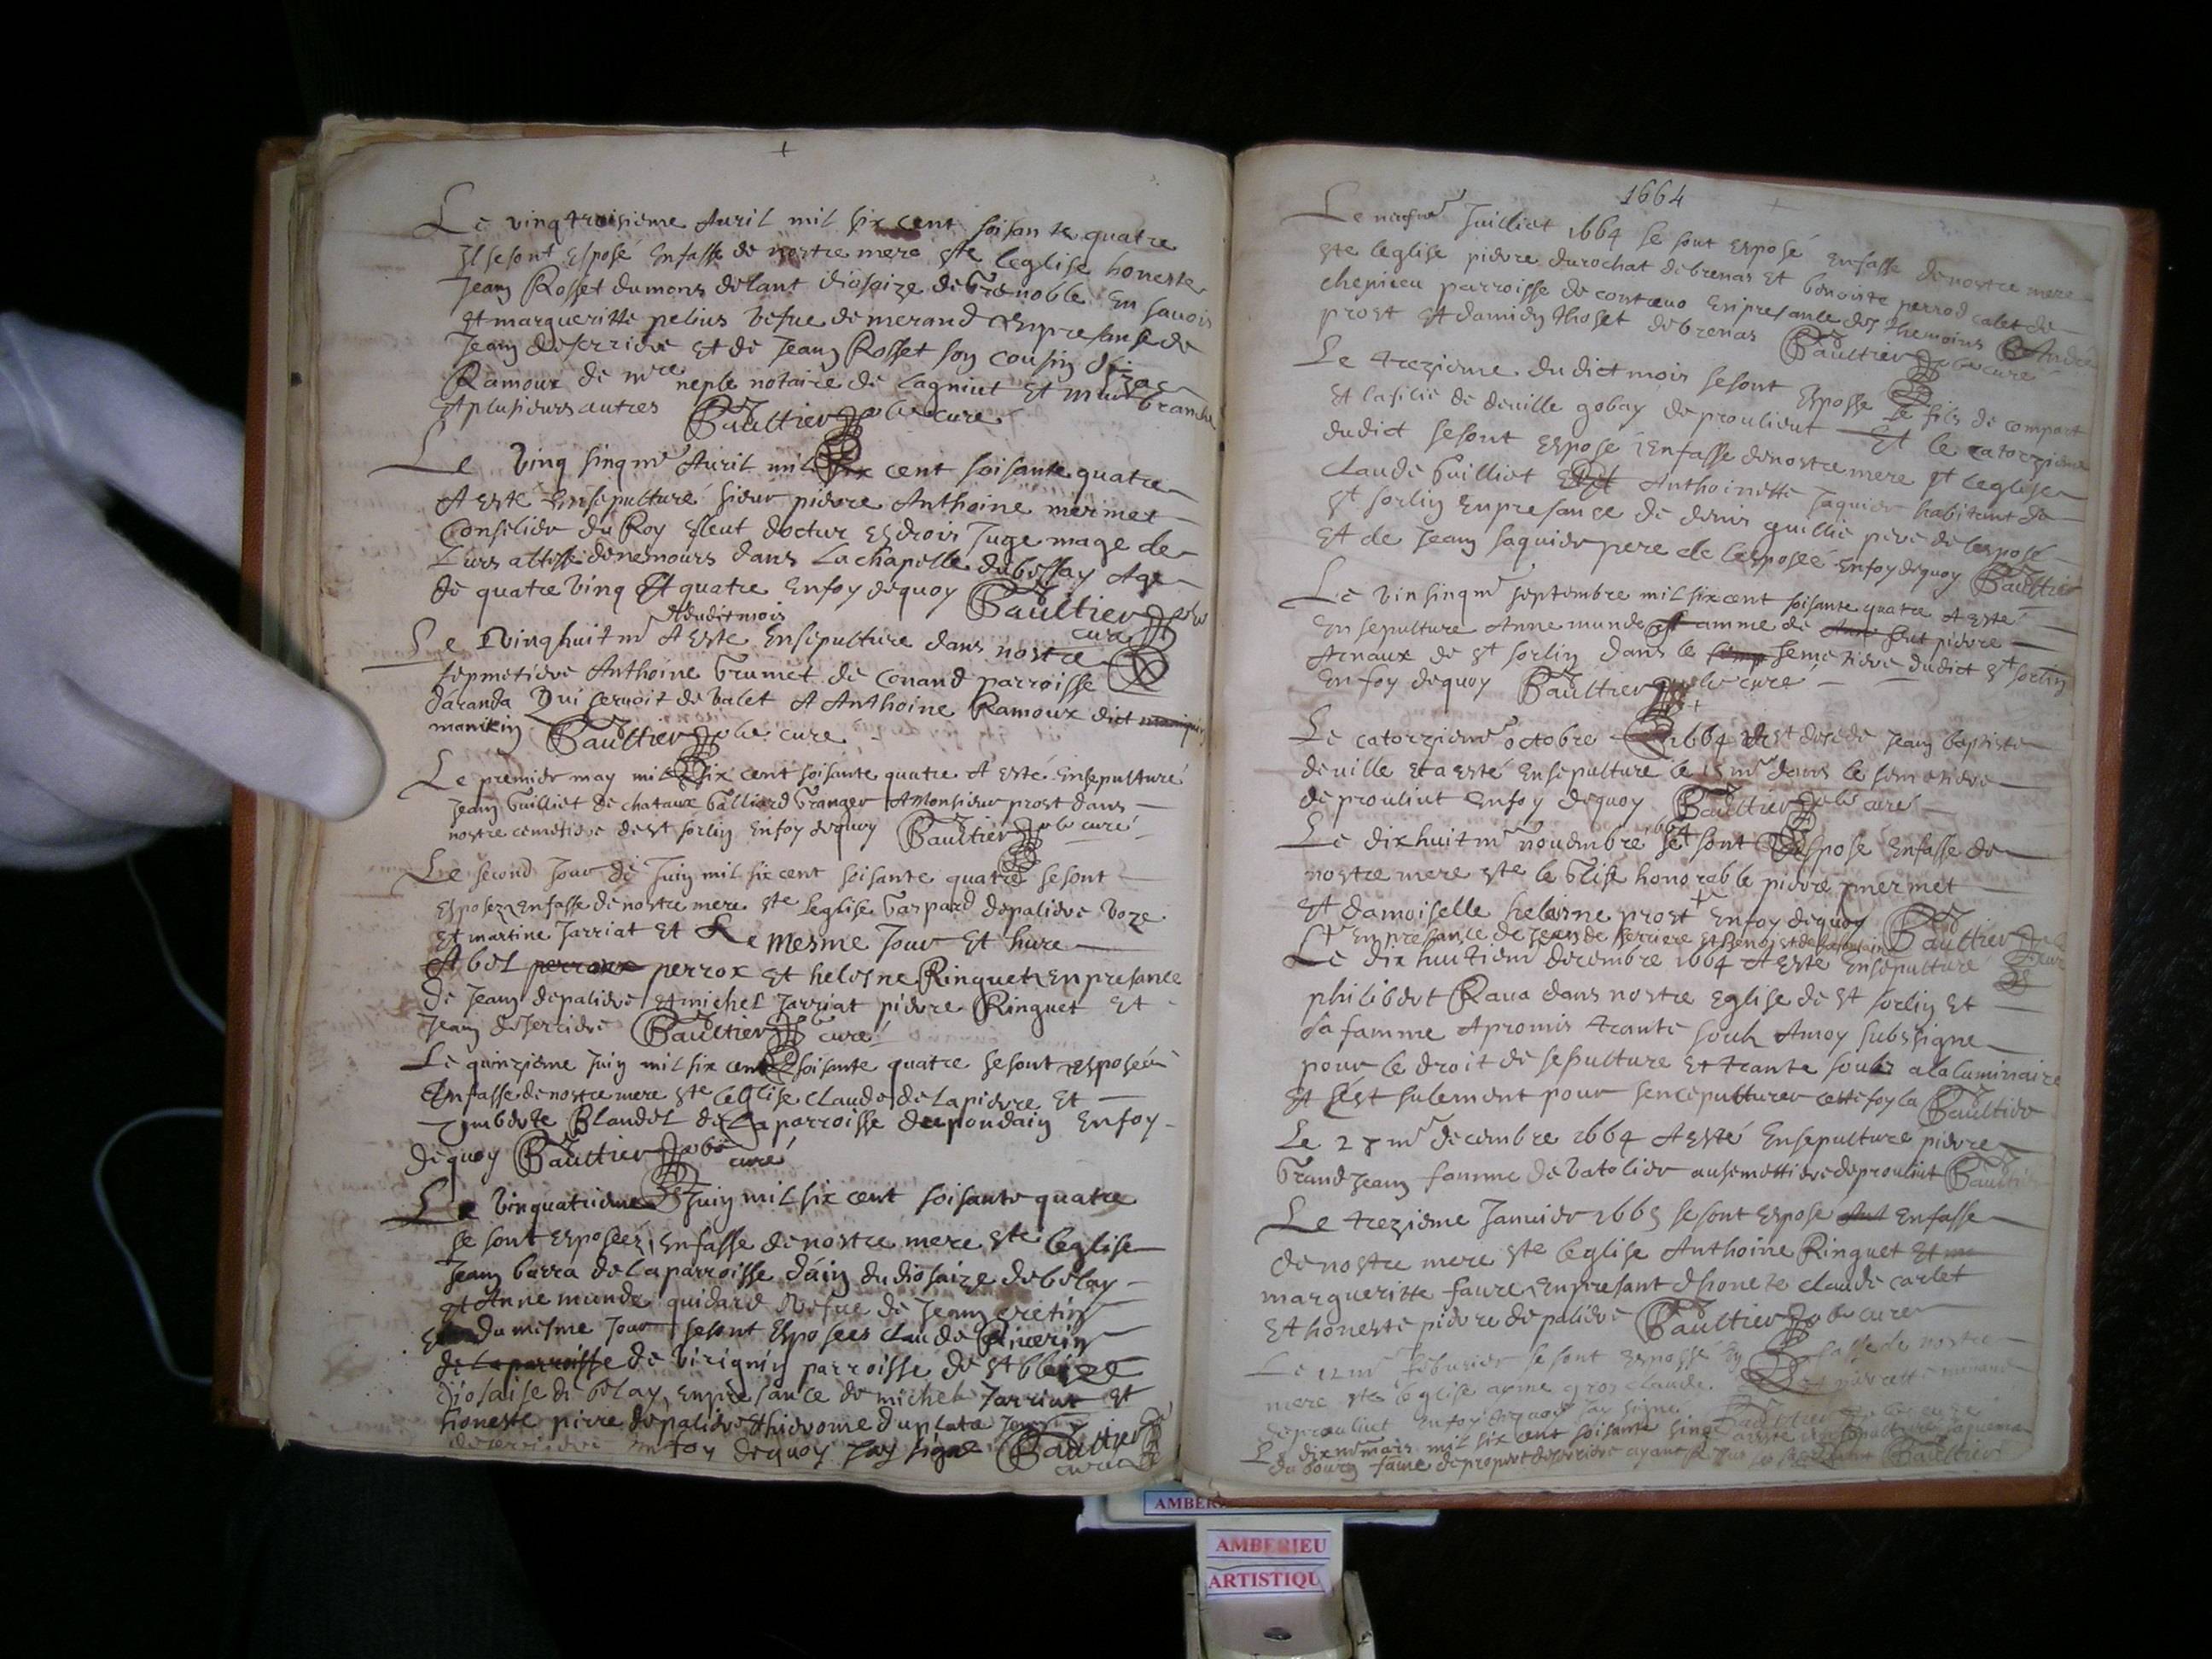 Le vingtroisieme Auril mil six cent soisante quatre
Il se sont Esposé Enfasse de nostre mere ste leglise honeste
Jean Rosset dumons delant diosaize de Grenoble En sauois
Et margueritte pelius vefue de merand Enpresanse de
Jean deserriere Et de Jean Rosset son cousin
Ramoux de mre neple notaire de Lagniut Et
Et plusieurs autres Baultier pbre cure
Le Ving sinqme Auril mil six cent soisante quatre
A Esté Ensepulturé sieur pierre Anthoine mermet
Consilier du Roy Esleut docteur Esdrois Juge mage de
Lurs altisse de nemours dans La chapelle dubessay Age
de quatre ving Et quatre Enfoy dequoy Baultier pbre
cure
dudit mois
Le vinghuitme A Este Ensepulture dans nostre
sepmetiere Anthoine Grumet de Conand parroisse
daranda Qui seruoit de valet A Anthoine Ramoux dict
manikin Baultier pbre cure
Le premier may mil six cent soisante quatre A Esté Ensepulturé
Jean Guilliet de chataux Galliard Granger A Monsieur prost dans
nostre cemetiere de st sorlin Enfoy dequoy Baultier pbre curé
Le second Jour de Juin mil six cent soisante quatre se sont
Esposez Enfasse de nostre mere ste Leglise Gaspard depaliere Boze
Et martine Jarriat Et Le mesme Jour Et hure
Abel perroux perrox Et helesne Ringuet Enpresance
de Jean depaliere Et michel Jarriat pierre Ringuet Et
Jean deserriere Baultier pbre curé
Le quinzieme Juin mil six cent soisante quatre se sont Esposéz
Enfasse de nostre mere ste leglise Claude de Lapierre Et
Ymberte Blandel de La parroisse depondain Enfoy
dequoy Baultier pbre curé
Le vinquatrieme Juin mil six cent soisante quatre
se sont Esposeéz Enfasse de nostre mere ste leglise
Jean barra de la parroisse dáin du diosaize de belay
Et Anne munde guidard vefue de Jean cretin
du mesme Jour se sont Esposees claude Riuerin
de la parroisse de virignin parroisse de st bleize
diosaise de belay Enpresance de michel Jarriat Et
honeste pirre depaliere thierome duplatre Jean
deserriere Enfoy dequoy Jay signe Baultier
curé
1664
Le neufme Juilliet 1664 se sont Esposé Enfasse de nostre mere
ste leglise pierre durochat debrenas Et benoiste perrod calet de
chepieu parroisse de contreuo Enpresanse des themoins André
prost Et damien thoset debrenas Baultier pbre curé
Le trezieme dudict mois se sont Esposse Le fils de compart
Et lasilie de deuille gobay de proulieut Et le catorzieme
dudict se sont Espose Enfasse de nostre mere st leglise
Claude Guilliet Anthoinette Jaquier habitant de
st sorlin Enpresance de denis guillie pere de lesposé
Et de Jean Jaquier pere de lesposée Enfoy dequoy Baultier
Le vinsinqme septembre mil six cent soisante quatre A Esté
Ensepulture Anne munde famme de pierre
Arnaux de st sorlin dans le semetiere dudict st sorlin
Enfoy dequoy Baultier pbre curé
Le catorzieme octobre 1664 Est desede Jean baptiste
deuille Et a esté Ensepulture le 15me dans le semetiere
de prouliut Enfoy dequoy Baultier pbre curé
Le dixhuitme nouembre 1664 se sont Espose Enfasse de
nostre mere ste le Glise honorable pierre mermet
Et damoiselle helesne prost + Enfoy dequoy Baultier
+ Enpresance de Jean de serriere Et
Le dix huitieme decembre 1664 A Este Ensepulturé
philibert Raua dans nostre Eglise de st sorlin Et
sa famme A promis trante soulz Amoy subssigne
pour le droit de sepulture Et trante soulz a la luminaire
Et sest sulement pour sencepulturer cette foy la Baultier
Le 27me decembre 1664 A Esté Ensepulture pierre
Grand Jean famme de vatelier au semettiere deprouliut Baultier
Le trezieme Januier 1665 se sont Espose Enfasse
de nostre mere ste leglise Anthoine Ringuet
margueritte faure Enpresant dhoneste claude carlet
Et honeste pierre depaliere Baultier pbre cure
Le 12me feburier se sont Esposse En fasse de nostre
mere ste leglise gros claude
deprouliut Enfoy dequoy Jay signé Baultier pbre cure
Le dixme mars mil six cent soisante sinq a este Ensepulturé
dubourg fame de deserriere ayant Baultier
AMBERIEU
ARTISTIQU